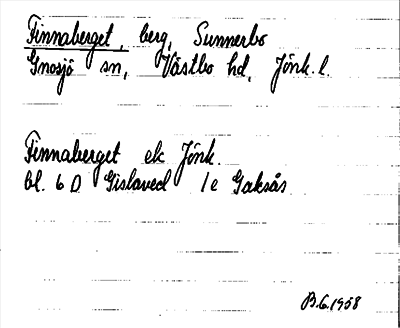 Finnaberget, berg, Sunnerbo
Gnosjö sn, Västbo hd, Jönk. l.
Finnaberget ek Jönk.
bl. 6 D Gislaved 1e Gaksås
B.G. 1958